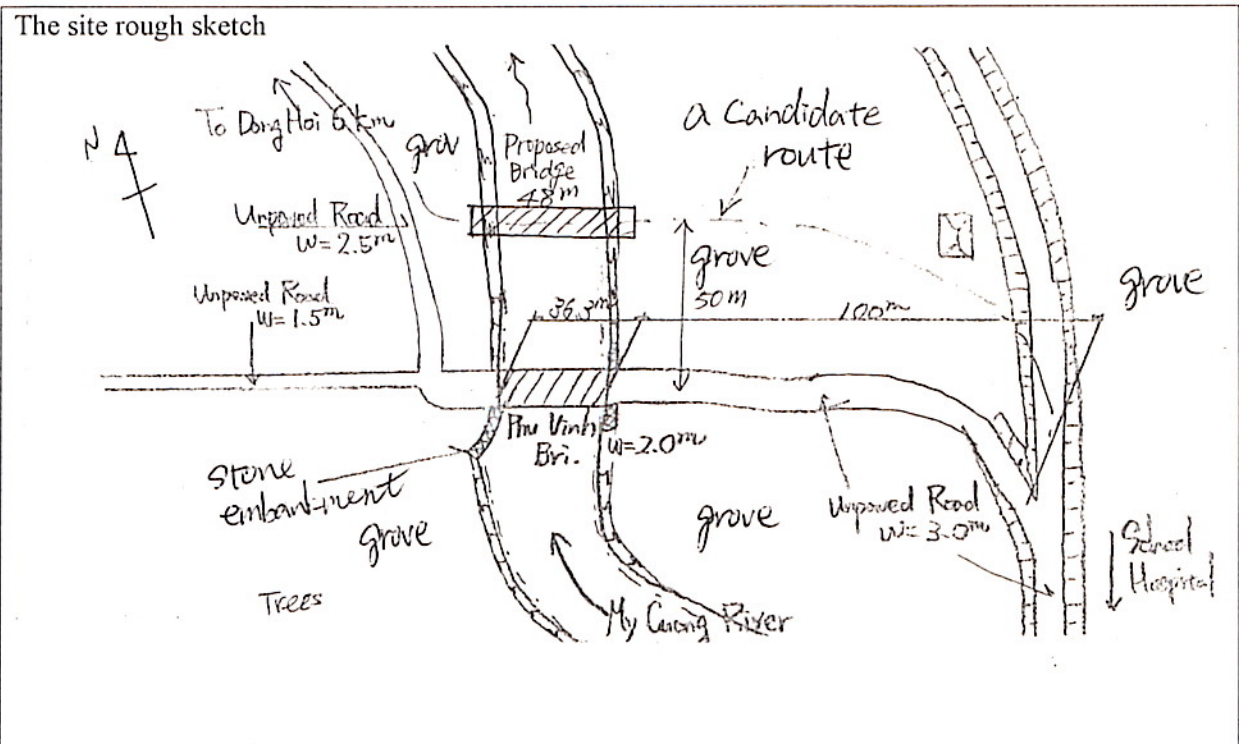 The site rough sketch
To Dong Hoi 6 km
N
griv
Proposed
Bridge
48m
a Candidate
route
Unpaved Road
w=2.5m
grove
50m
grove
Unpaved Road
w=1.5m
36.3m
100m
Phu Vinh
Bri.
w=2.0m
stone
embankment
grove
grove
Unpaved Road
w=3.0m
School
Hospital
Trees
My Cuong River